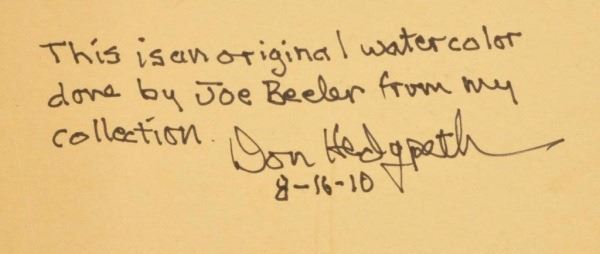 This is an original watercolor
done by Joe Beeler from my
collection. Don Hedgpeth
8-16-10